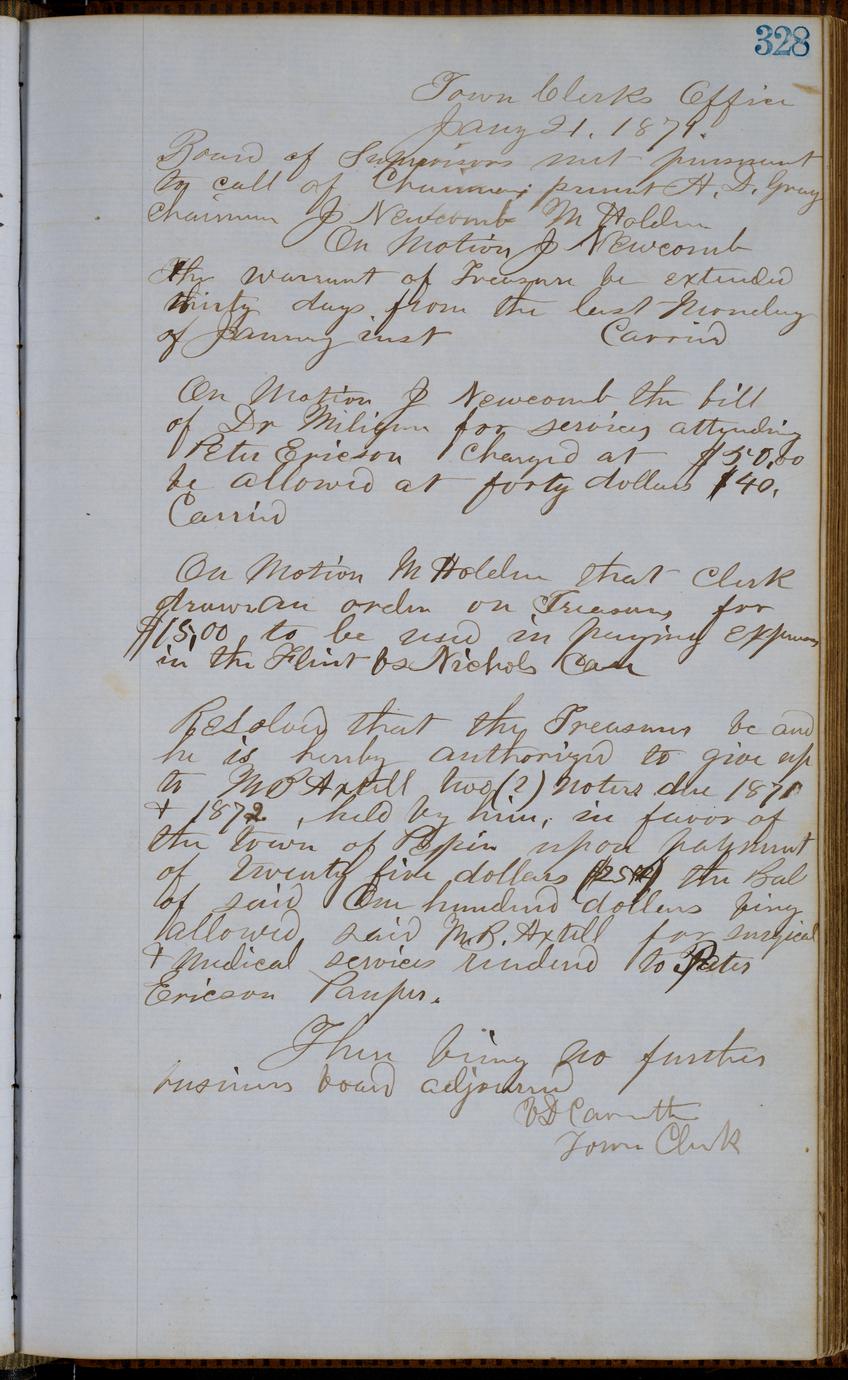 328
Town Clerks Office
Jany 21. 1871.
Board of Supervisors met pursuant
to call of Chairman; present H. D. Gray
Chairman J Newcomb M Holden
On Motion J Newcomb
the warrant of Treasurer be extended
thirty days from the last Monday
of January inst Carried
On Motion J Newcomb the bill
of Dr Miligan for services attending
Peter Ericson Charged at $50.00
be allowed at forty dollars $40.
Carried
On Motion M Holden that Clerk
draw an order on Treasurer for
$15,00 to be used in paying Expenses
in the Flint vs Nichols Case
Resolved that the Treasurer be and
he is hereby authorized to give up
to M R Axtell two (2) notes due 1871
+ 1872, held by him, in favor of
the town of Pepin upon payment
of twenty five dollars the Bal
of said One hundred dollars being
allowed said M. R. Axtell for surgical
+ Medical services rendered to Peter
Ericson Pauper.
There being no further
business board adjourned
V D Carruth
Town Clerk